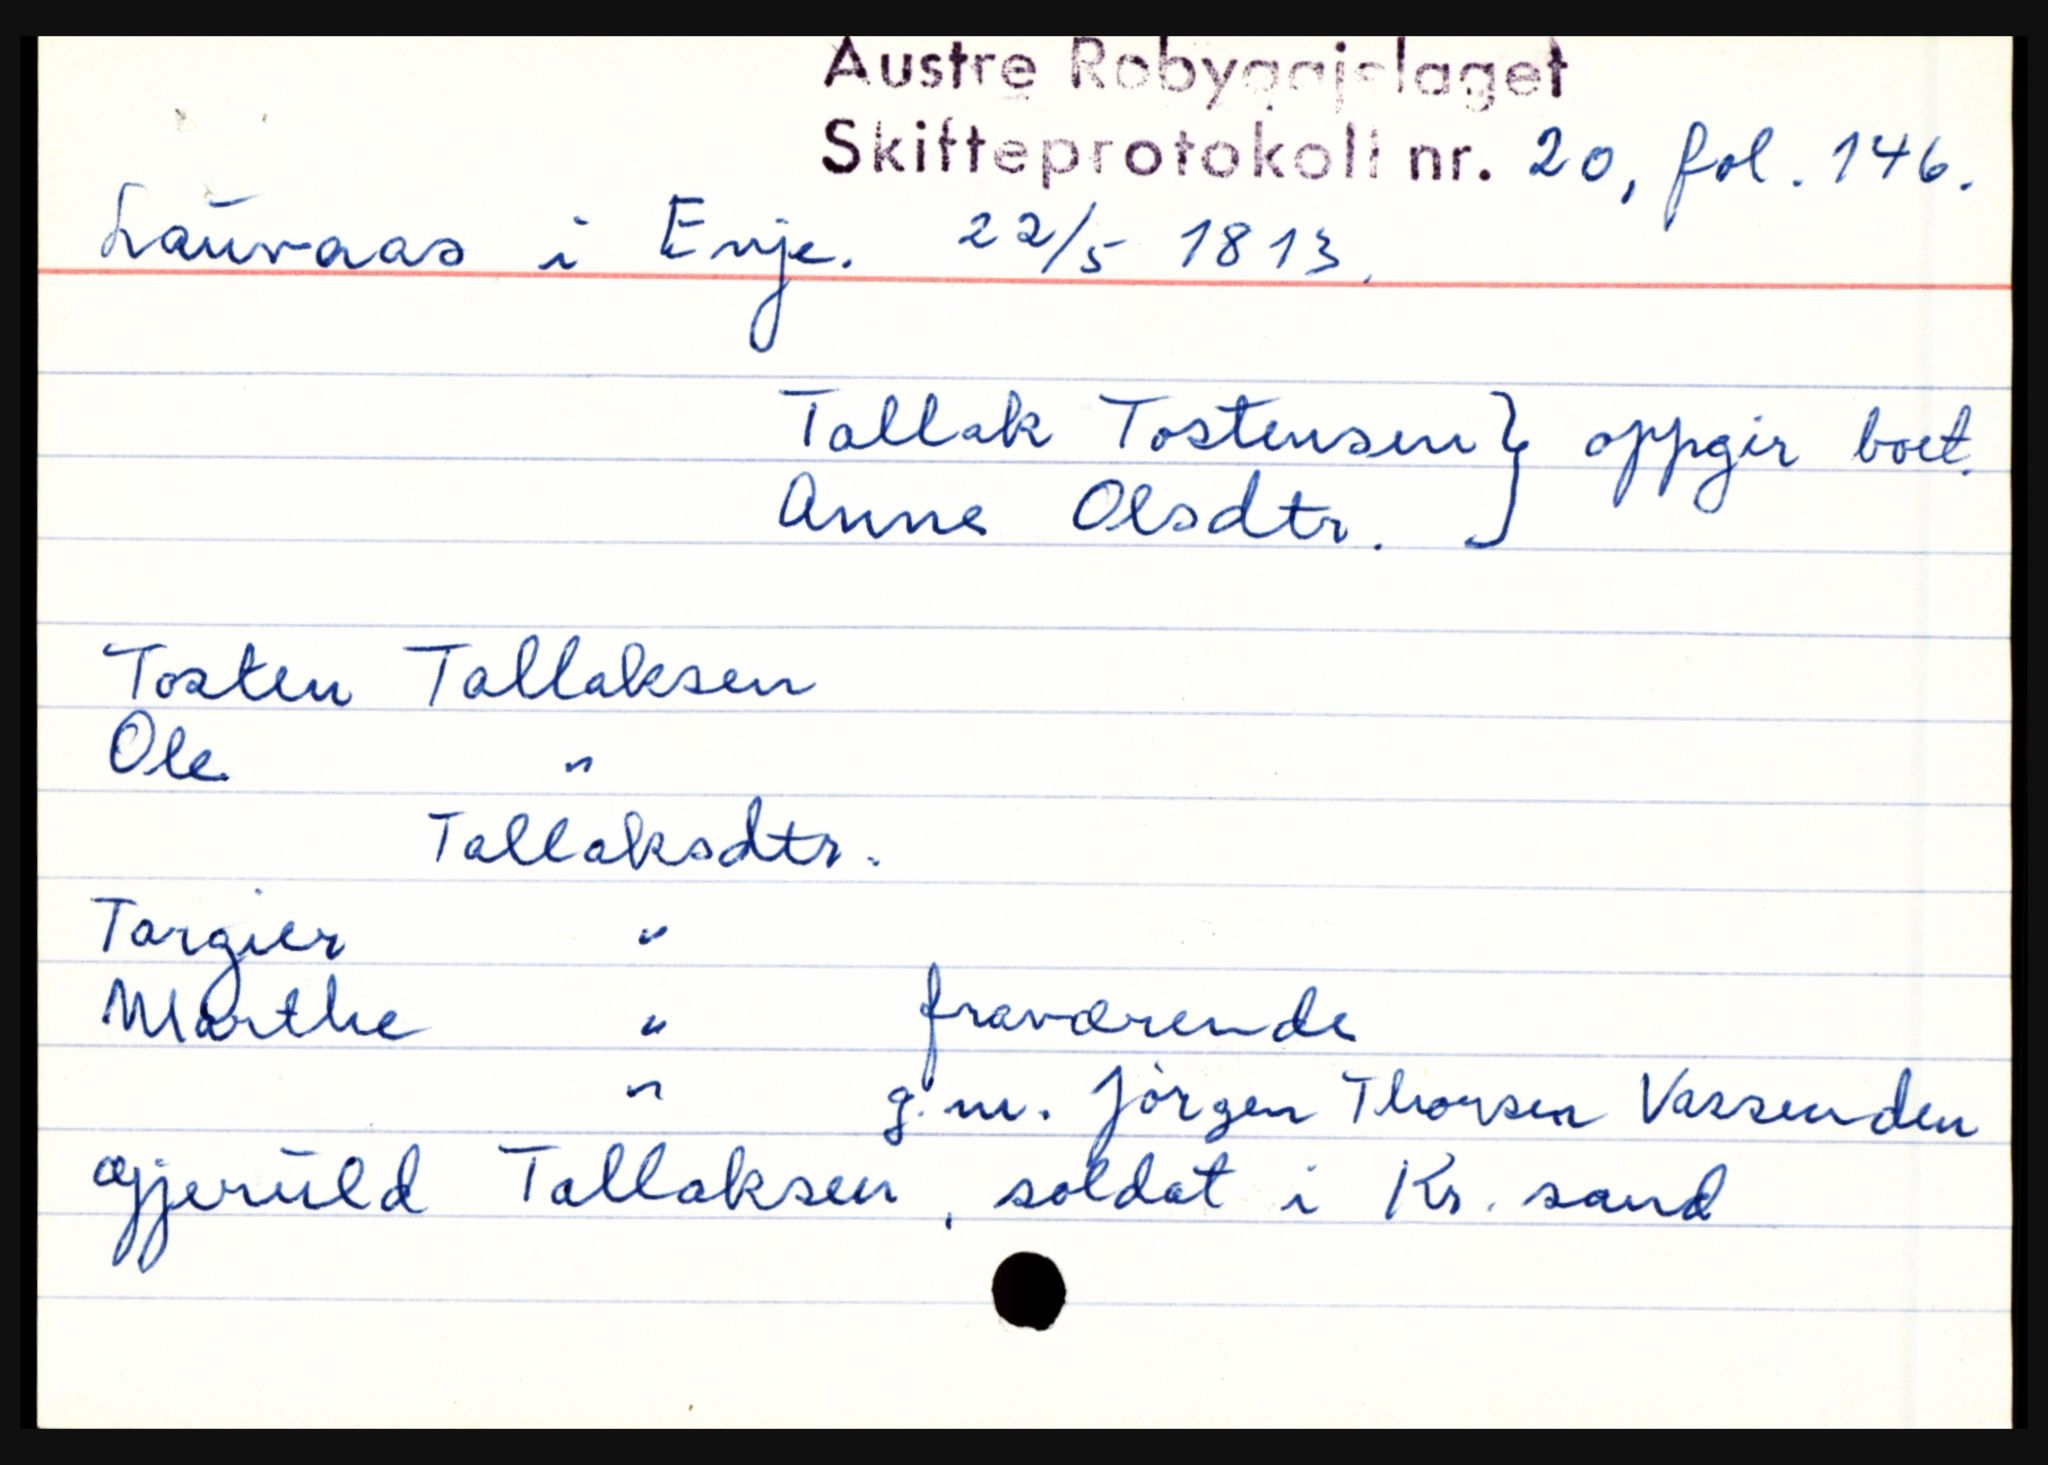 Austre Robyggjelaget
Skifteprotokoll nr. 20, fol. 146.
Lauvaas i Evje. 22/5 1813.
Tallak Tostensen } oppgir boet.
Anne Olsdtr.
Tosten Tallaksen
Ole "
Tallaksdtr.
Targier "
Marthe " fraværende
" g.m. Jörgen Thorsen Vassenden
Gjeruld Tallaksen, soldat i Kr.sand